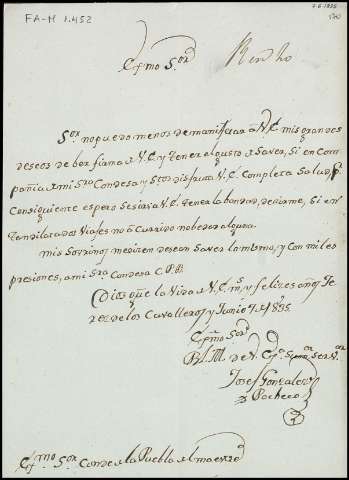 FA-M 1.452
7-6-1835
Exmo Sor
Sor no puedo menos de manifestar á V.E. mis grandes
deseos de ber firma de V.E. y tener el gusto de Saver, si en com
pañia de mi Sra Condesa y Stos disfruta V.E. Completa Salud, p
Consiguiente espero se sirva V.E. tener la bondad, decirme, si en
tan dilatados Viajes no á Currido nobedad alguna.
mis Sovrinos me dicen desean Saver lo mismo, y con mil es
presiones, a mi Sra Condesa C.P.B.
Dios gue la Vida de V.E. ms y felices años Je
rez de los Cavalleros y Junio 7, de 1835.
Exmo Sor
B.L.M. de V.E. su Servor
Josef Gonzalez
Pacheco
Exmo Sor Conde de la Puebla del maestre